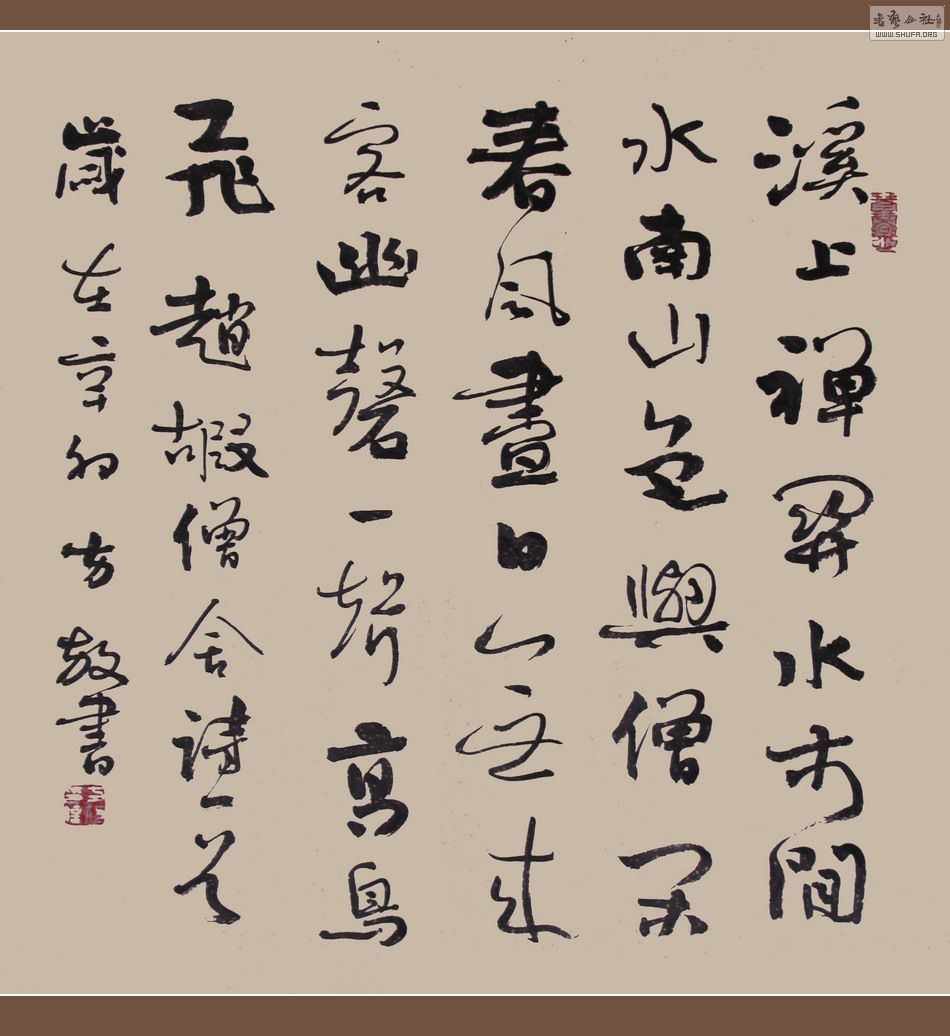 溪上禅关水木間
水南山色與僧閑
春風盡日无來
客幽磬一聲高鳥
飛趙嘏僧舍詩一首
歲在辛卯方敬書
WWW.SHUFA.ORG